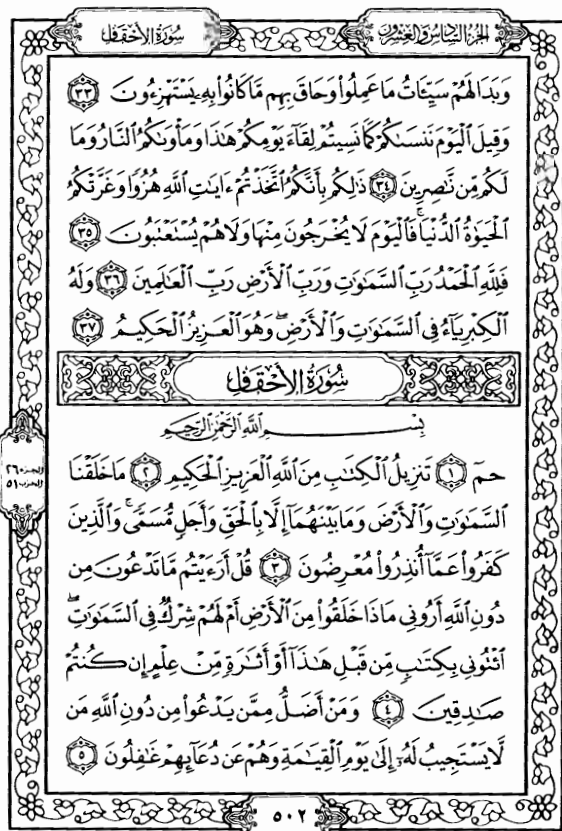 الجزء السادس والعشرون
سورة الأحقاف
وَبَدَا لَهُمْ سَيِّـَٔاتُ مَا عَمِلُوا۟ وَحَاقَ بِهِم مَّا كَانُوا۟ بِهِۦ يَسْتَهْزِءُونَ ٣٣
وَقِيلَ ٱلْيَوْمَ نَنسَىٰكُمْ كَمَا نَسِيتُمْ لِقَآءَ يَوْمِكُمْ هَٰذَا وَمَأْوَىٰكُمُ ٱلنَّارُ وَمَا
لَكُم مِّن نَّٰصِرِينَ ٣٤ ذَٰلِكُم بِأَنَّكُمُ ٱتَّخَذْتُمْ ءَايَٰتِ ٱللَّهِ هُزُوًا وَغَرَّتْكُمُ
ٱلْحَيَوٰةُ ٱلدُّنْيَا ۚ فَٱلْيَوْمَ لَا يُخْرَجُونَ مِنْهَا وَلَا هُمْ يُسْتَعْتَبُونَ ٣٥
فَلِلَّهِ ٱلْحَمْدُ رَبِّ ٱلسَّمَٰوَٰتِ وَرَبِّ ٱلْأَرْضِ رَبِّ ٱلْعَٰلَمِينَ ٣٦ وَلَهُ
ٱلْكِبْرِيَآءُ فِى ٱلسَّمَٰوَٰتِ وَٱلْأَرْضِ ۖ وَهُوَ ٱلْعَزِيزُ ٱلْحَكِيمُ ٣٧
سُورَةُ الأَحْقَاف
بِسْمِ ٱللَّهِ ٱلرَّحْمَٰنِ ٱلرَّحِيمِ
حمٓ ١ تَنزِيلُ ٱلْكِتَٰبِ مِنَ ٱللَّهِ ٱلْعَزِيزِ ٱلْحَكِيمِ ٢ مَا خَلَقْنَا
ٱلسَّمَٰوَٰتِ وَٱلْأَرْضَ وَمَا بَيْنَهُمَآ إِلَّا بِٱلْحَقِّ وَأَجَلٍ مُّسَمًّى ۚ وَٱلَّذِينَ
كَفَرُوا۟ عَمَّآ أُنذِرُوا۟ مُعْرِضُونَ ٣ قُلْ أَرَءَيْتُم مَّا تَدْعُونَ مِن
دُونِ ٱللَّهِ أَرُونِى مَاذَا خَلَقُوا۟ مِنَ ٱلْأَرْضِ أَمْ لَهُمْ شِرْكٌ فِى ٱلسَّمَٰوَٰتِ ۖ
ٱئْتُونِى بِكِتَٰبٍ مِّن قَبْلِ هَٰذَآ أَوْ أَثَٰرَةٍ مِّنْ عِلْمٍ إِن كُنتُمْ
صَٰدِقِينَ ٤ وَمَنْ أَضَلُّ مِمَّن يَدْعُوا۟ مِن دُونِ ٱللَّهِ مَن
لَّا يَسْتَجِيبُ لَهُۥٓ إِلَىٰ يَوْمِ ٱلْقِيَٰمَةِ وَهُمْ عَن دُعَآئِهِمْ غَٰفِلُونَ ٥
الجزء ٢٦
الحزب ٥١
٥٠٢